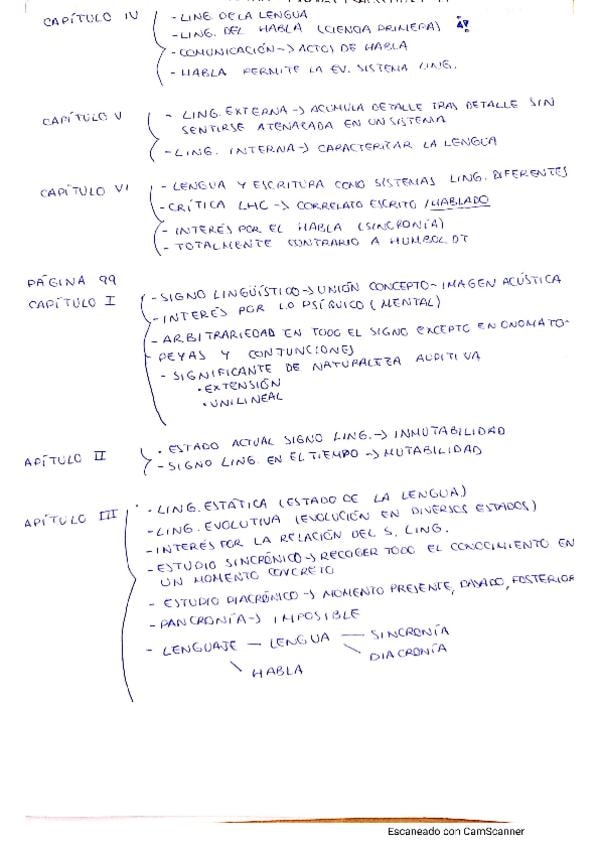 CAPÍTULO IV
- LING. DE LA LENGUA
- LING. DEL HABLA (CIENCIA PRIMERA)
- COMUNICACIÓN -> ACTOS DE HABLA
- HABLA PERMITE LA EV. SISTEMA LING.
CAPÍTULO V
- LING. EXTERNA -> ACUMULA DETALLE TRAS DETALLE SIN
SENTIRSE ATENAZADA EN UN SISTEMA
- LING. INTERNA -> CARACTERIZAR LA LENGUA
CAPÍTULO VI
- LENGUA Y ESCRITURA COMO SISTEMAS LING. DIFERENTES
- CRÍTICA LHC -> CORRELATO ESCRITO / HABLADO
- INTERÉS POR EL HABLA (SINCRONÍA)
- TOTALMENTE CONTRARIO A HUMBOLDT
PÁGINA 99
CAPÍTULO I
- SIGNO LINGÜÍSTICO -> UNIÓN CONCEPTO - IMAGEN ACÚSTICA
- INTERÉS POR LO PSÍQUICO (MENTAL)
- ARBITRARIEDAD EN TODO EL SIGNO EXCEPTO EN ONOMATO-
PEYAS Y CONJUNCIONES
- SIGNIFICANTE DE NATURALEZA AUDITIVA
• EXTENSIÓN
• UNILINEAL
APÍTULO II
• ESTADO ACTUAL SIGNO LING. -> INMUTABILIDAD
- SIGNO LING. EN EL TIEMPO -> MUTABILIDAD
APÍTULO III
- LING. ESTÁTICA (ESTADO DE LA LENGUA)
- LING. EVOLUTIVA (EVOLUCIÓN EN DIVERSOS ESTADOS)
- INTERÉS POR LA RELACIÓN DEL S. LING.
- ESTUDIO SINCRÓNICO -> RECOGER TODO EL CONOCIMIENTO EN
UN MOMENTO CONCRETO
- ESTUDIO DIACRÓNICO -> MOMENTO PRESENTE, PASADO, POSTERIOR
- PANCRONÍA -> IMPOSIBLE
- LENGUAJE — LENGUA — SINCRONÍA
DIACRONÍA
HABLA
Escaneado con CamScanner